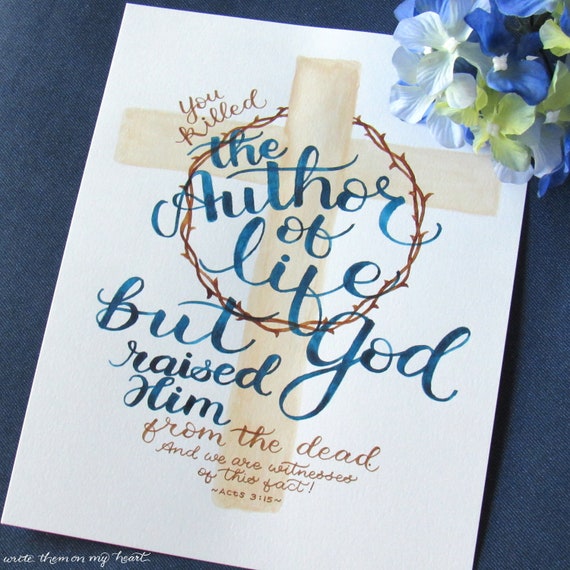 You
killed
the
Author
of
life
but God
raised
Him
from the dead
And we are witnesses
of this fact!
~ACTS 3:15~
write them on my heart